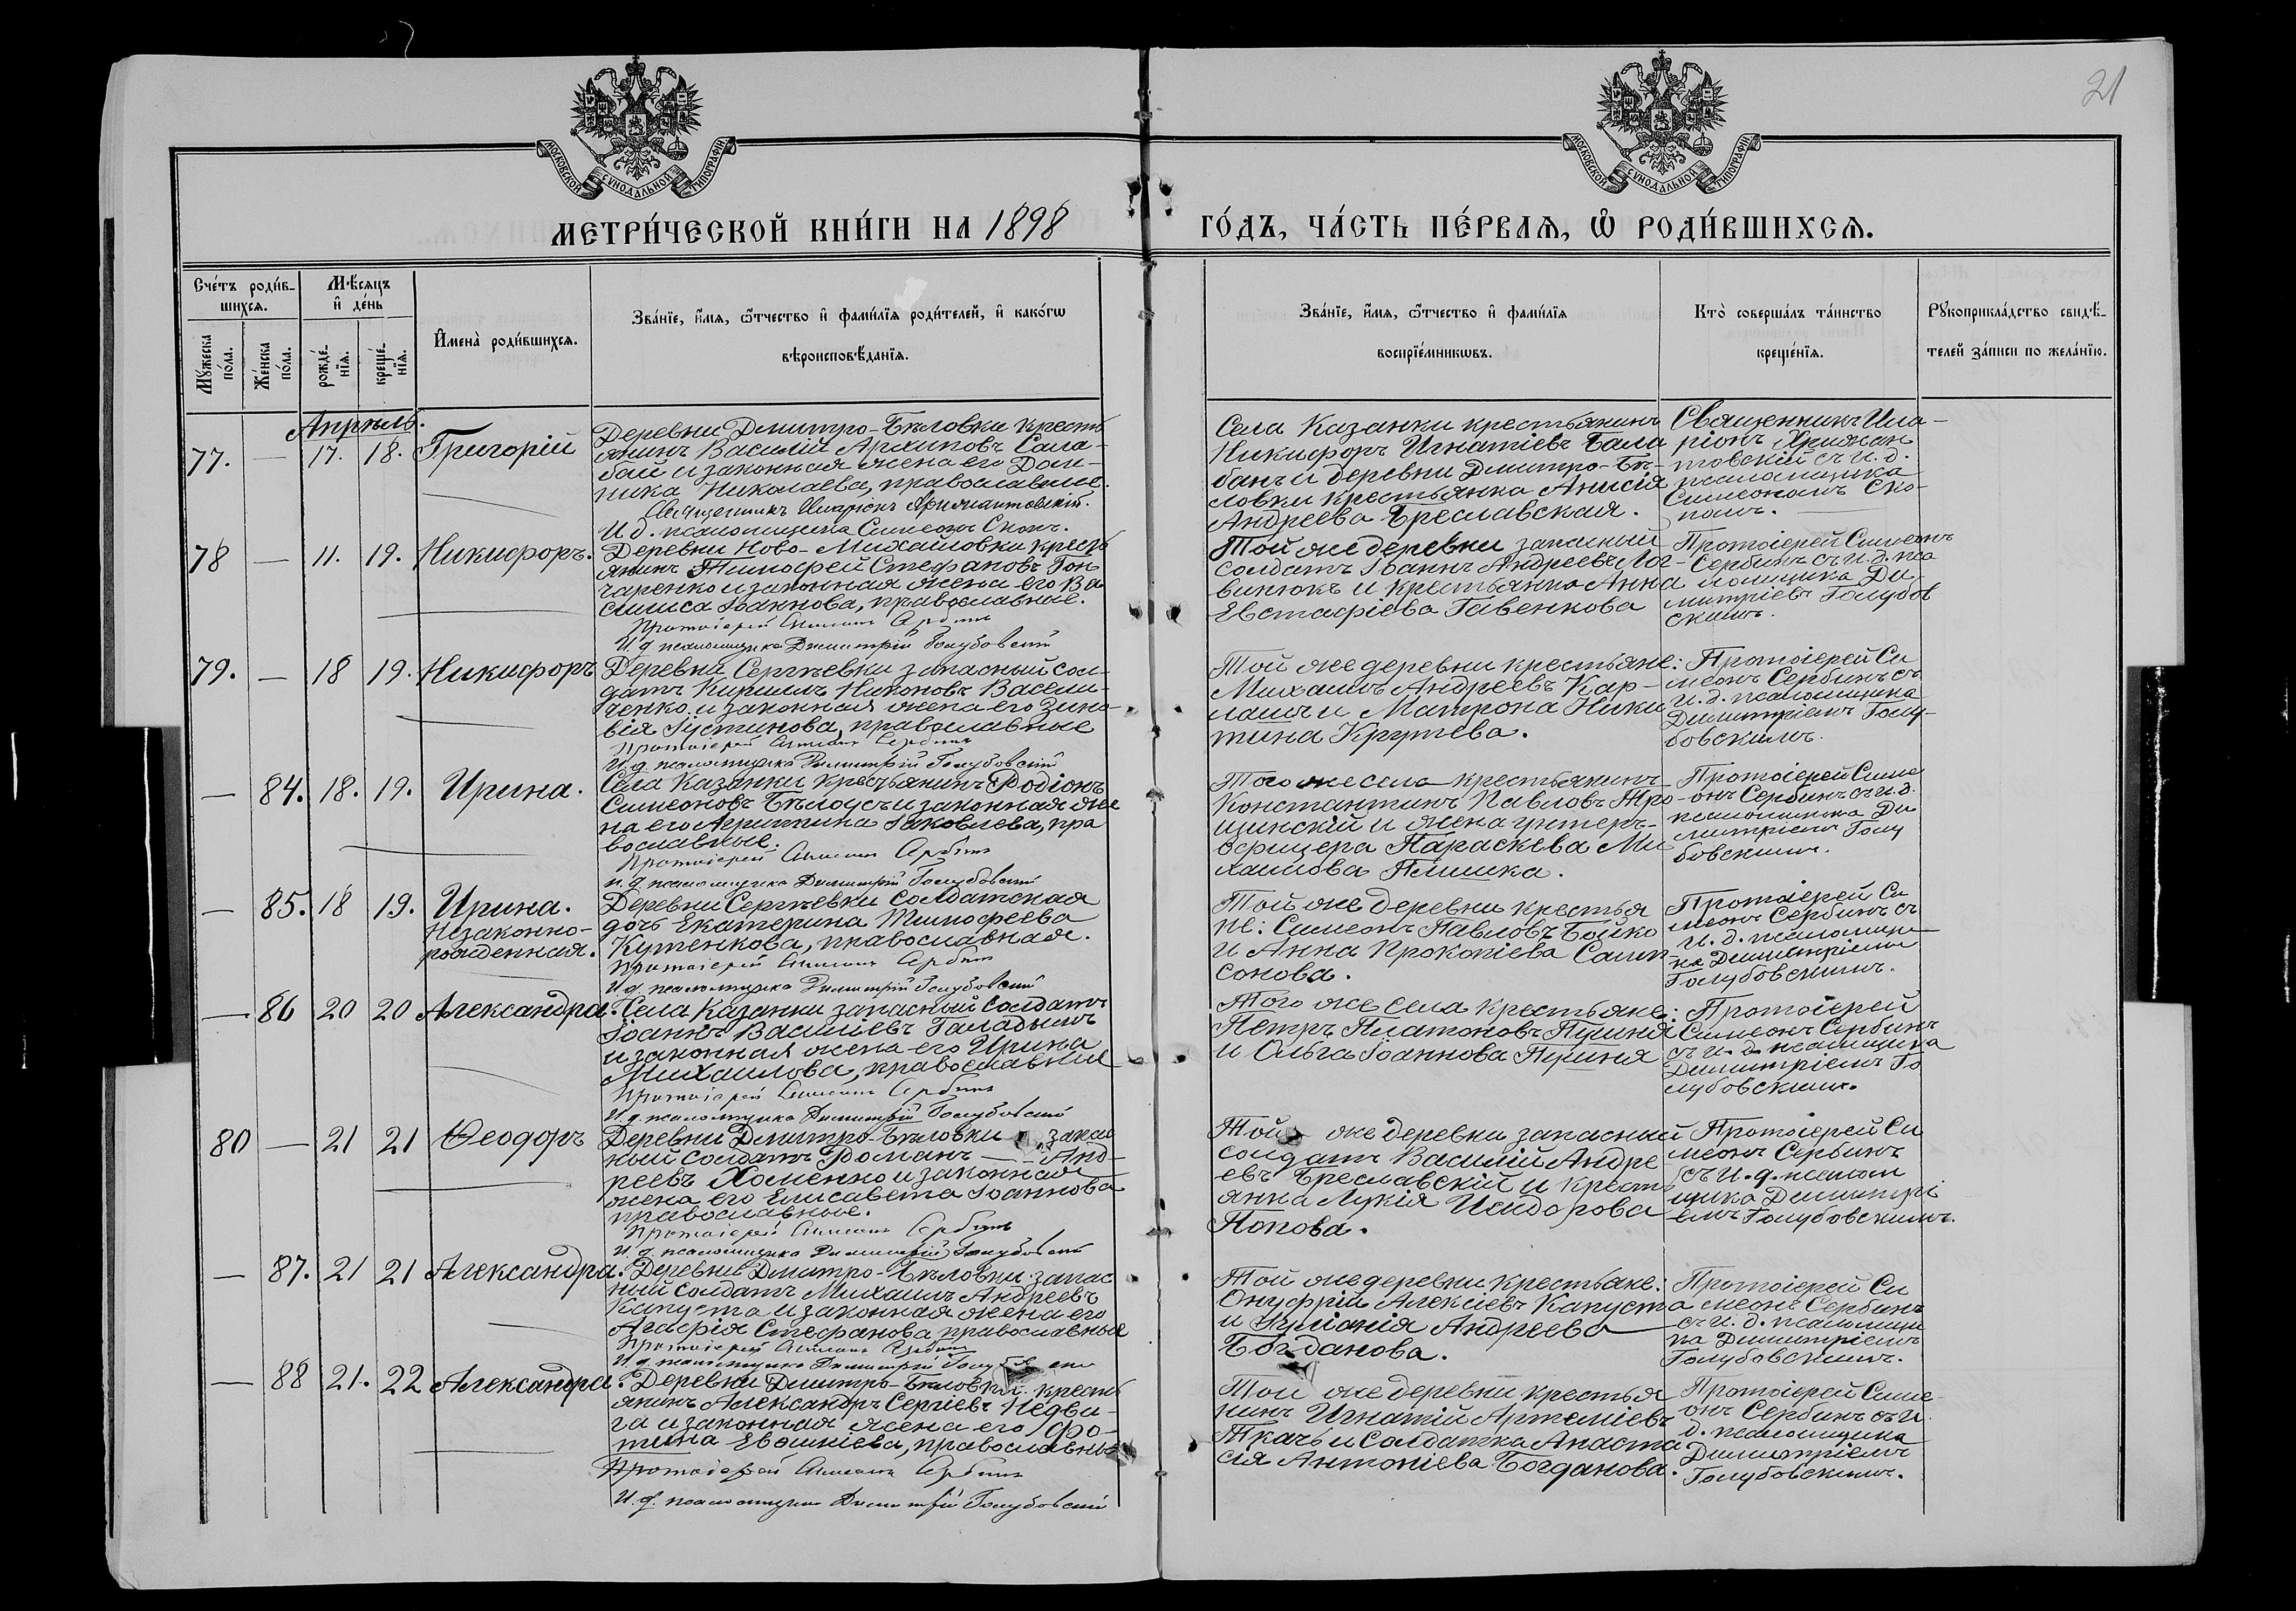 21
МОСКОВСКОЙ СѴНОДАЛЬНОЙ ТИПОГРАФІИ
МОСКОВСКОЙ СѴНОДАЛЬНОЙ ТИПОГРАФІИ
МЕТРИ́ЧЕСКОЙ КНИ́ГИ НА 1898
ГО́ДЪ, ЧА́СТЬ ПЕ́РВАѦ, Ѽ РОДИ́ВШИХСѦ.
Сче́тъ роди́в-
шихсѧ.
Мꙋ́жеска
по́ла.
Же́нска
по́ла.
Мѣ́сѧцъ
и҆ де́нь
рожде́-
нїѧ.
креще́-
нїѧ.
И҆мена̀ роди́вшихсѧ.
Зва́нїе, и҆́мѧ, ѻ҆́тчество и҆ фами́лїѧ роди́телей, и҆ како́гѡ
вѣроисповѣ́данїѧ.
Зва́нїе, и҆́мѧ, ѻ҆́тчество и҆ фами́лїѧ
воспрїе́мникѡвъ.
Кто̀ соверша́лъ та́инство
креще́нїѧ.
Рꙋкоприкла́дство свидѣ́-
телей за́писи по жела́нїю.
Апрѣль.
77. — 17. 18. Григорій
Деревни Дмитро-Бѣловки кресть
янинъ Василій Архиповъ Сала-
бай и законная жена его Дом-
ника Николаева, православные.
Священникъ Иларіонъ
И. д. псаломщика Симеонъ Скопъ.
Села Казанки крестьянинъ
Никифоръ Игнатіевъ Бала
банъ и деревни Дмитро-Бѣ-
ловки крестьянка Анисія
Андреева Бреславская.
Священникъ Ила-
ріонъ Хрисан
товскій съ и. д.
псаломщика
Симеономъ Ско-
помъ.
78 — 11. 19. Никифоръ.
Деревни Ново-Михайловки кресть
янинъ Тимофей Стефановъ Гон
чаренко и законная жена его Ва
силиса Іоаннова, православные.
Протоіерей Симеонъ Сербинъ
И. д. псаломщика Димитрій Голубовскій
Той же деревни запасный
солдатъ Іоаннъ Андреевъ Лог-
винюкъ и крестьянка Анна
Евстафіева Гавенкова
Протоіерей Симеонъ
Сербинъ съ и. д. пса
ломщика Ди
митріевъ Голубов
скимъ.
79. — 18 19. Никифоръ
Деревни Сергѣевки запасный сол-
датъ Кириллъ Никоновъ Васели-
ченко и законная жена его Зино-
вія Іустинова, православные
Протоіерей Симеонъ Сербинъ
И. д. псаломщика Димитрій Голубовскій
Той же деревни крестьяне:
Михаилъ Андреевъ Кар-
лашъ и Матрона Ники
тина Круглева.
Протоіерей Си
меонъ Сербинъ съ
и. д. псаломщика
Димитріемъ Голу-
бовскимъ.
— 84. 18. 19. Ирина.
Села Казанки крестьянинъ Родіонъ
Симеоновъ Бѣлоусъ и законная же
на его Агриппина Іаковлева, пра
вославные.
Протоіерей Симеонъ Сербинъ
и. д. псаломщика Димитрій Голубовскій
Того же села крестьянинъ
Константинъ Павловъ Тро-
щинскій и жена унтеръ-
офицера Параскева Ми
хаилова Плишка.
Протоіерей Симе
онъ Сербинъ съ и. д.
псаломщика Ди
митріемъ Голу
бовскимъ.
— 85. 18 19. Ирина.
незаконно-
рожденная.
Деревни Сергѣевки солдатская
дочь Екатерина Тимофеева
Кутенкова, православная.
Протоіерей Симеонъ Сербинъ
И. д. псаломщика Димитрій Голубовскій
Той же деревни крестья
не: Симеонъ Павловъ Бойко
и Анна Прокопіева Самп-
сонова.
Протоіерей Си
меонъ Сербинъ съ
и. д. псаломщи
ка Димитріемъ
Голубовскимъ.
— 86 20 20 Александра.
Села Казанки запасный солдатъ
Іоаннъ Васильевъ Галадымъ
и законная жена его Ирина
Михаилова, православные
Протоіерей Симеонъ Сербинъ
И. д. псаломщика Димитрій Голубовскій
Того же села крестьяне:
Петръ Платоновъ Пушня
и Ольга Іоаннова Пушня
Протоіерей
Симеонъ Сербинъ
съ и. д. псаломщика
Димитріемъ Го
лубовскимъ.
80 — 21 21 Ѳеодоръ
Деревни Дмитро-Бѣловки запас
ный солдатъ Романъ — Анд-
реевъ Хоменко и законная
жена его Елисавета Іоаннова
православные.
Протоіерей Симеонъ Сербинъ
И. д. псаломщика Димитрій Голубовскій
Той же деревни запасный
солдатъ Василій Андре
евъ Бреславскій и кресть
янка Лукія Исидорова
Попова.
Протоіерей Си
меонъ Сербинъ
съ и. д. псалом
щика Димитрі
емъ Голубовскимъ.
— 87. 21 21 Александра.
Деревни Дмитро-Бѣловки запас
ный солдатъ Михаилъ Андреевъ
Капуста и законная жена его
Агафія Стефанова православные
Протоіерей Симеонъ Сербинъ
И. д. псаломщика Димитрій
Той же деревни крестьяне:
Онуфрій Алексіевъ Капуста
и Іуліанія Андреева
Богданова.
Протоіерей Си
меонъ Сербинъ
съ и. д. псаломщи
ка Димитріемъ
Голубовскимъ.
— 88 21. 22 Александра.
Деревни Дмитро-Бѣловки кресть
янинъ Александръ Сергіевъ Недви-
га и законная жена его Фо-
тина Евфиміева, православные
Протоіерей Симеонъ Сербинъ
И. д. псаломщика Димитрій Голубовскій
Той же деревни крестья
нинъ Игнатій Артеміевъ
Ткачъ и солдатка Анаста
сія Антоніева Богданова.
Протоіерей Симе-
онъ Сербинъ съ и.
д. псаломщика
Димитріемъ
Голубовскимъ.